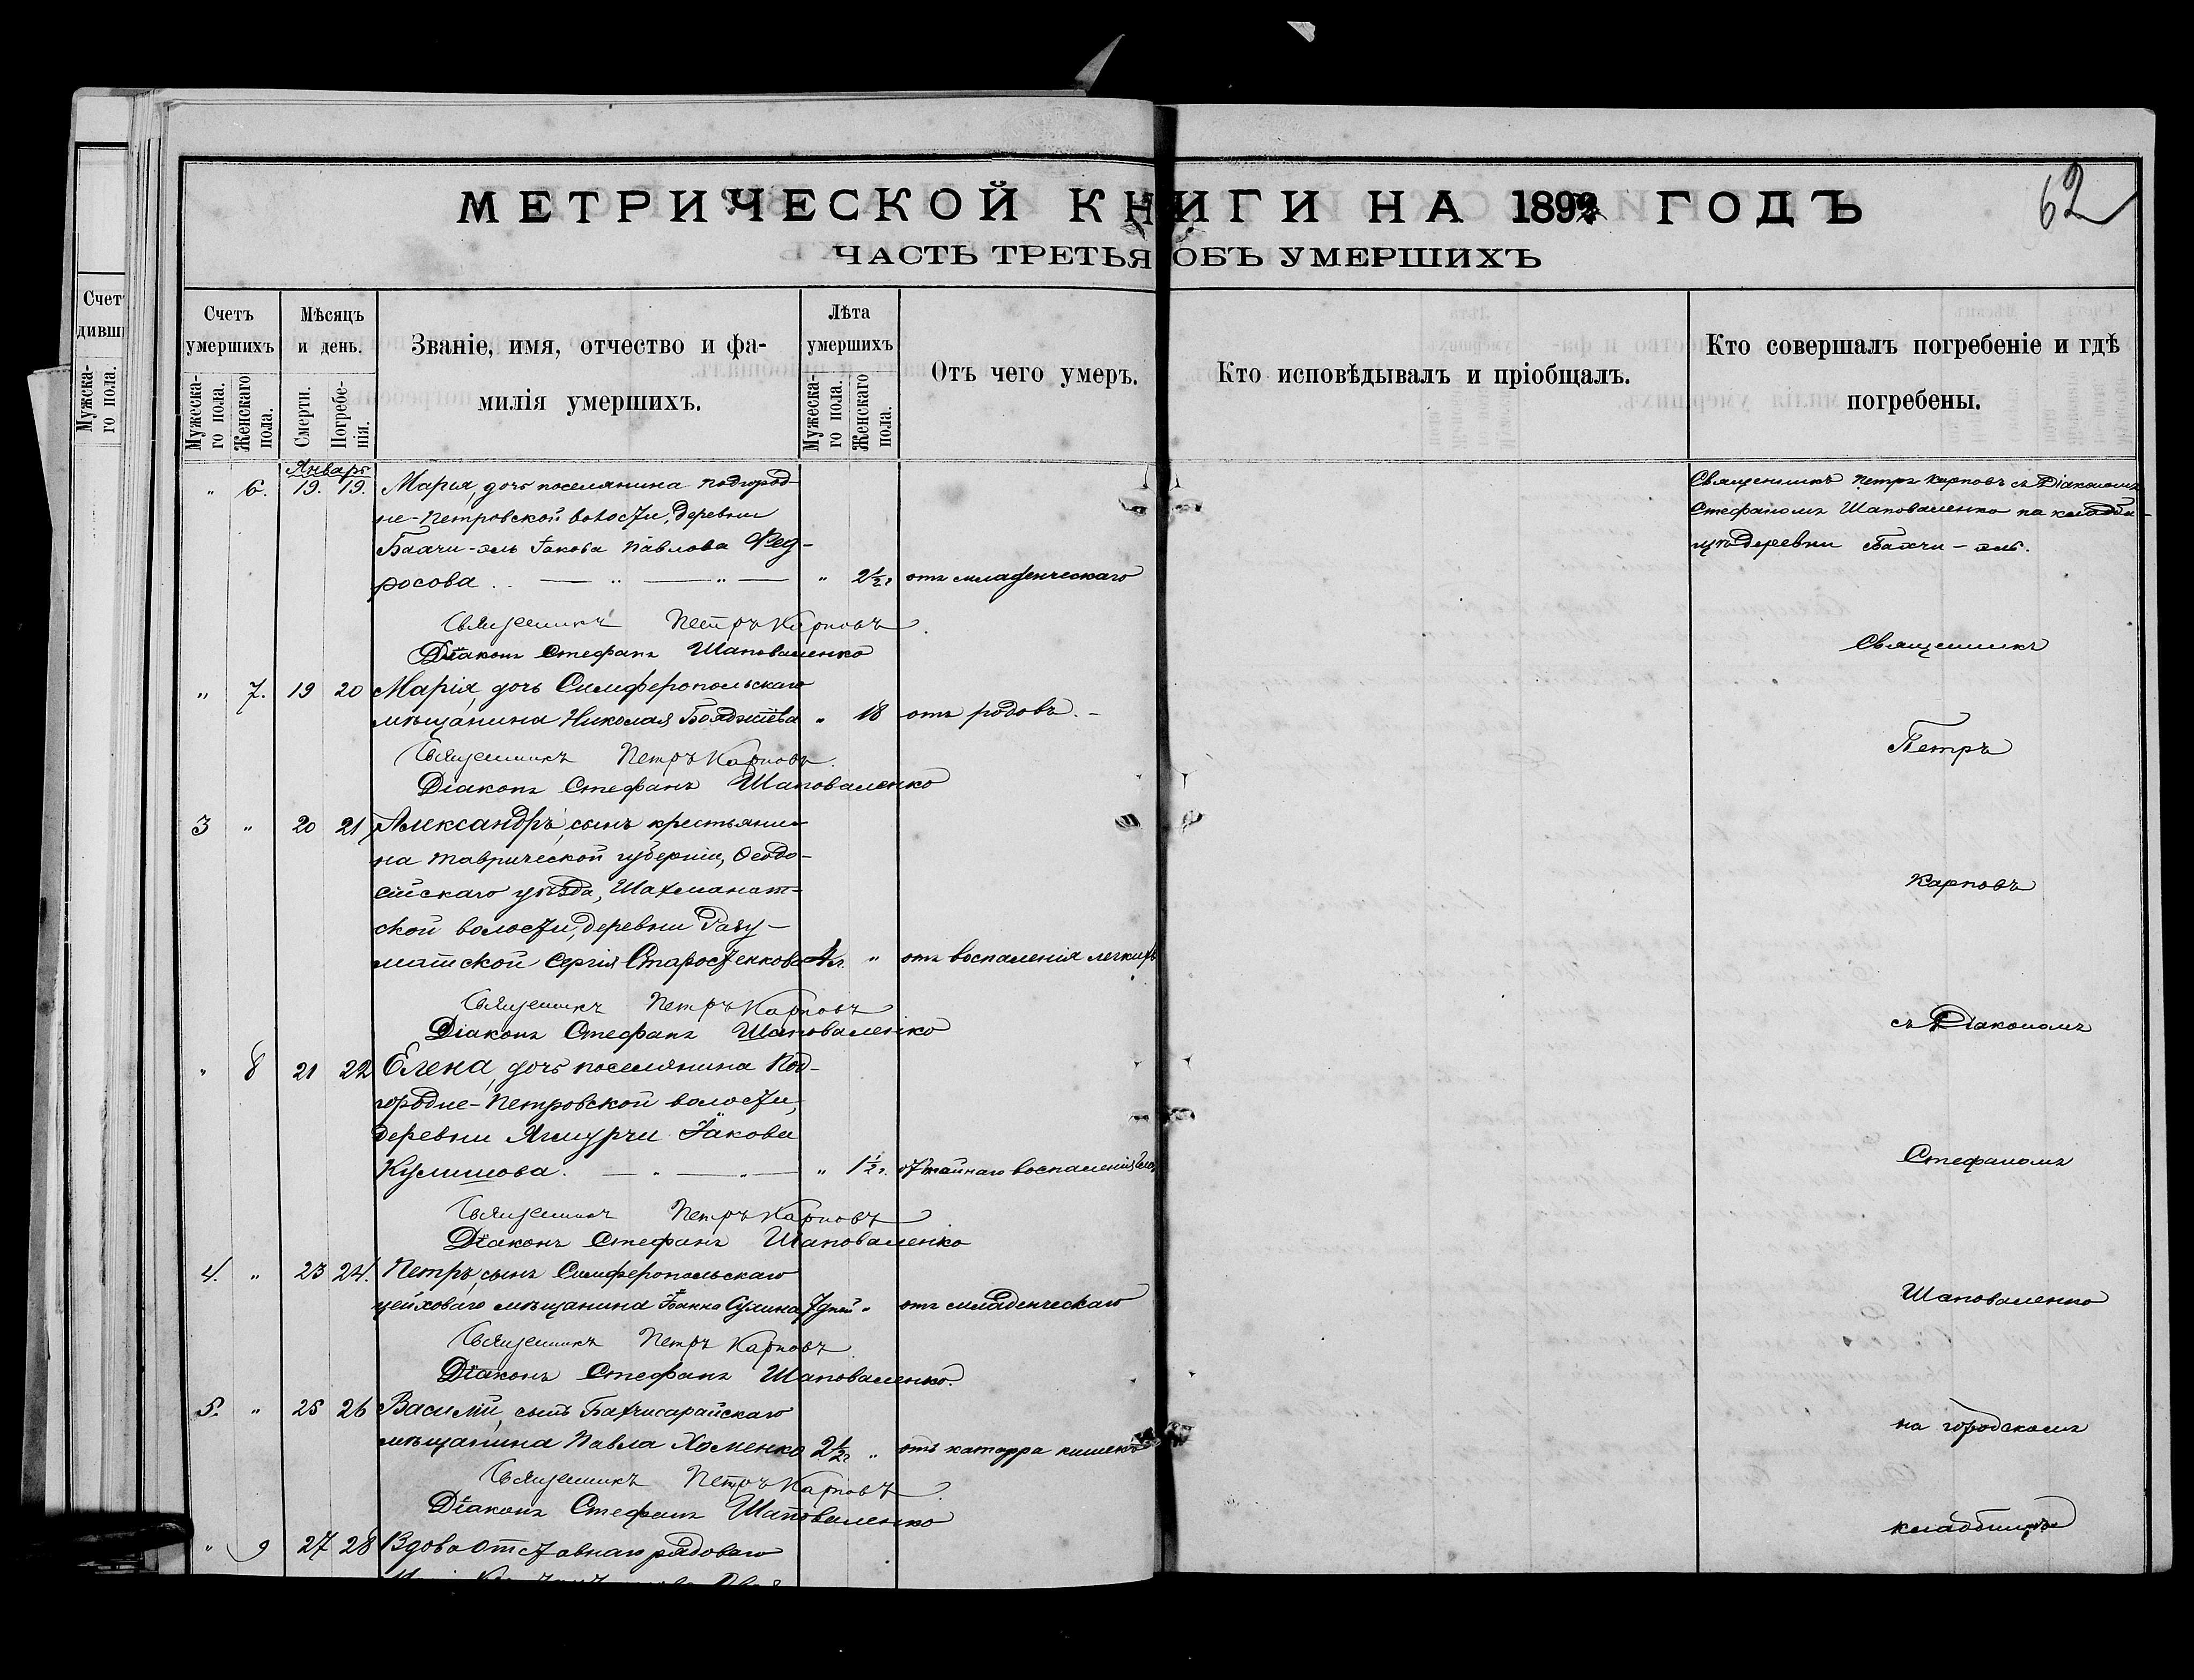 МЕТРИЧЕСКОЙ КНИГИ НА 1892 ГОДЪ
62
ЧАСТЬ ТРЕТЬЯ ОБЪ УМЕРШИХЪ
Счетъ умершихъ
Мужеска-го пола.
Женскаго пола.
Мѣсяцъ и день.
Смерти.
Погребе-нія.
Званіе, имя, отчество и фа-
милія умершихъ.
Лѣта умершихъ
Мужеска-го пола.
Женскаго пола.
Отъ чего умеръ.
Кто исповѣдывалъ и пріобщалъ.
Кто совершалъ погребеніе и гдѣ
погребены.
Январь
" 6. 19. 19. Марія, дочь поселянина подгород-
не-Петровской волости, деревни
Бахчи-эль Іакова Павлова Фед-
росова " 2½ г. отъ младенческаго
Священникъ Петръ Карповъ съ Діакономъ
Стефаномъ Шаповаленко на кладби-
щѣ деревни Бахчи-эль.
Священникъ Петръ Карповъ.
Діаконъ Стефанъ Шаповаленко
" 7. 19 20 Марія, дочь Симферопольскаго
мѣщанина Николая Бояджіева " 18 отъ родовъ.
Священникъ Петръ Карповъ.
Діаконъ Стефанъ Шаповаленко
3 " 20 21 Александръ, сынъ крестьяни-
на Таврической губерніи, Ѳеодо-
сійскаго уѣзда,
ской волости, деревни
Сергія " отъ воспаленія легкихъ
Священникъ Петръ Карповъ
Діаконъ Стефанъ Шаповаленко
" 8 21 22 Елена, дочь поселянина Под-
городне-Петровской волости,
деревни Ягмурчи Іакова
" 1½ г. воспаленія
Священникъ Петръ Карповъ
Діаконъ Стефанъ Шаповаленко
4. " 23 24. Петръ, сынъ Симферопольскаго
цеховаго мѣщанина 7 дней " отъ младенческаго
Священникъ Петръ Карповъ
Діаконъ Стефанъ Шаповаленко.
5. " 25 26 Василій, сынъ Бахчисарайскаго
мѣщанина Павла Хоменко 2½ г. " отъ катарра кишекъ
Священникъ Петръ Карповъ.
Діаконъ Стефанъ Шаповаленко
" 9 27 28 Вдова отставнаго рядоваго
Священникъ
Петръ
Карповъ
съ Діакономъ
Стефаномъ
Шаповаленко
на городскомъ
кладбищѣ
Счет
дивши
Мужска-го пола.